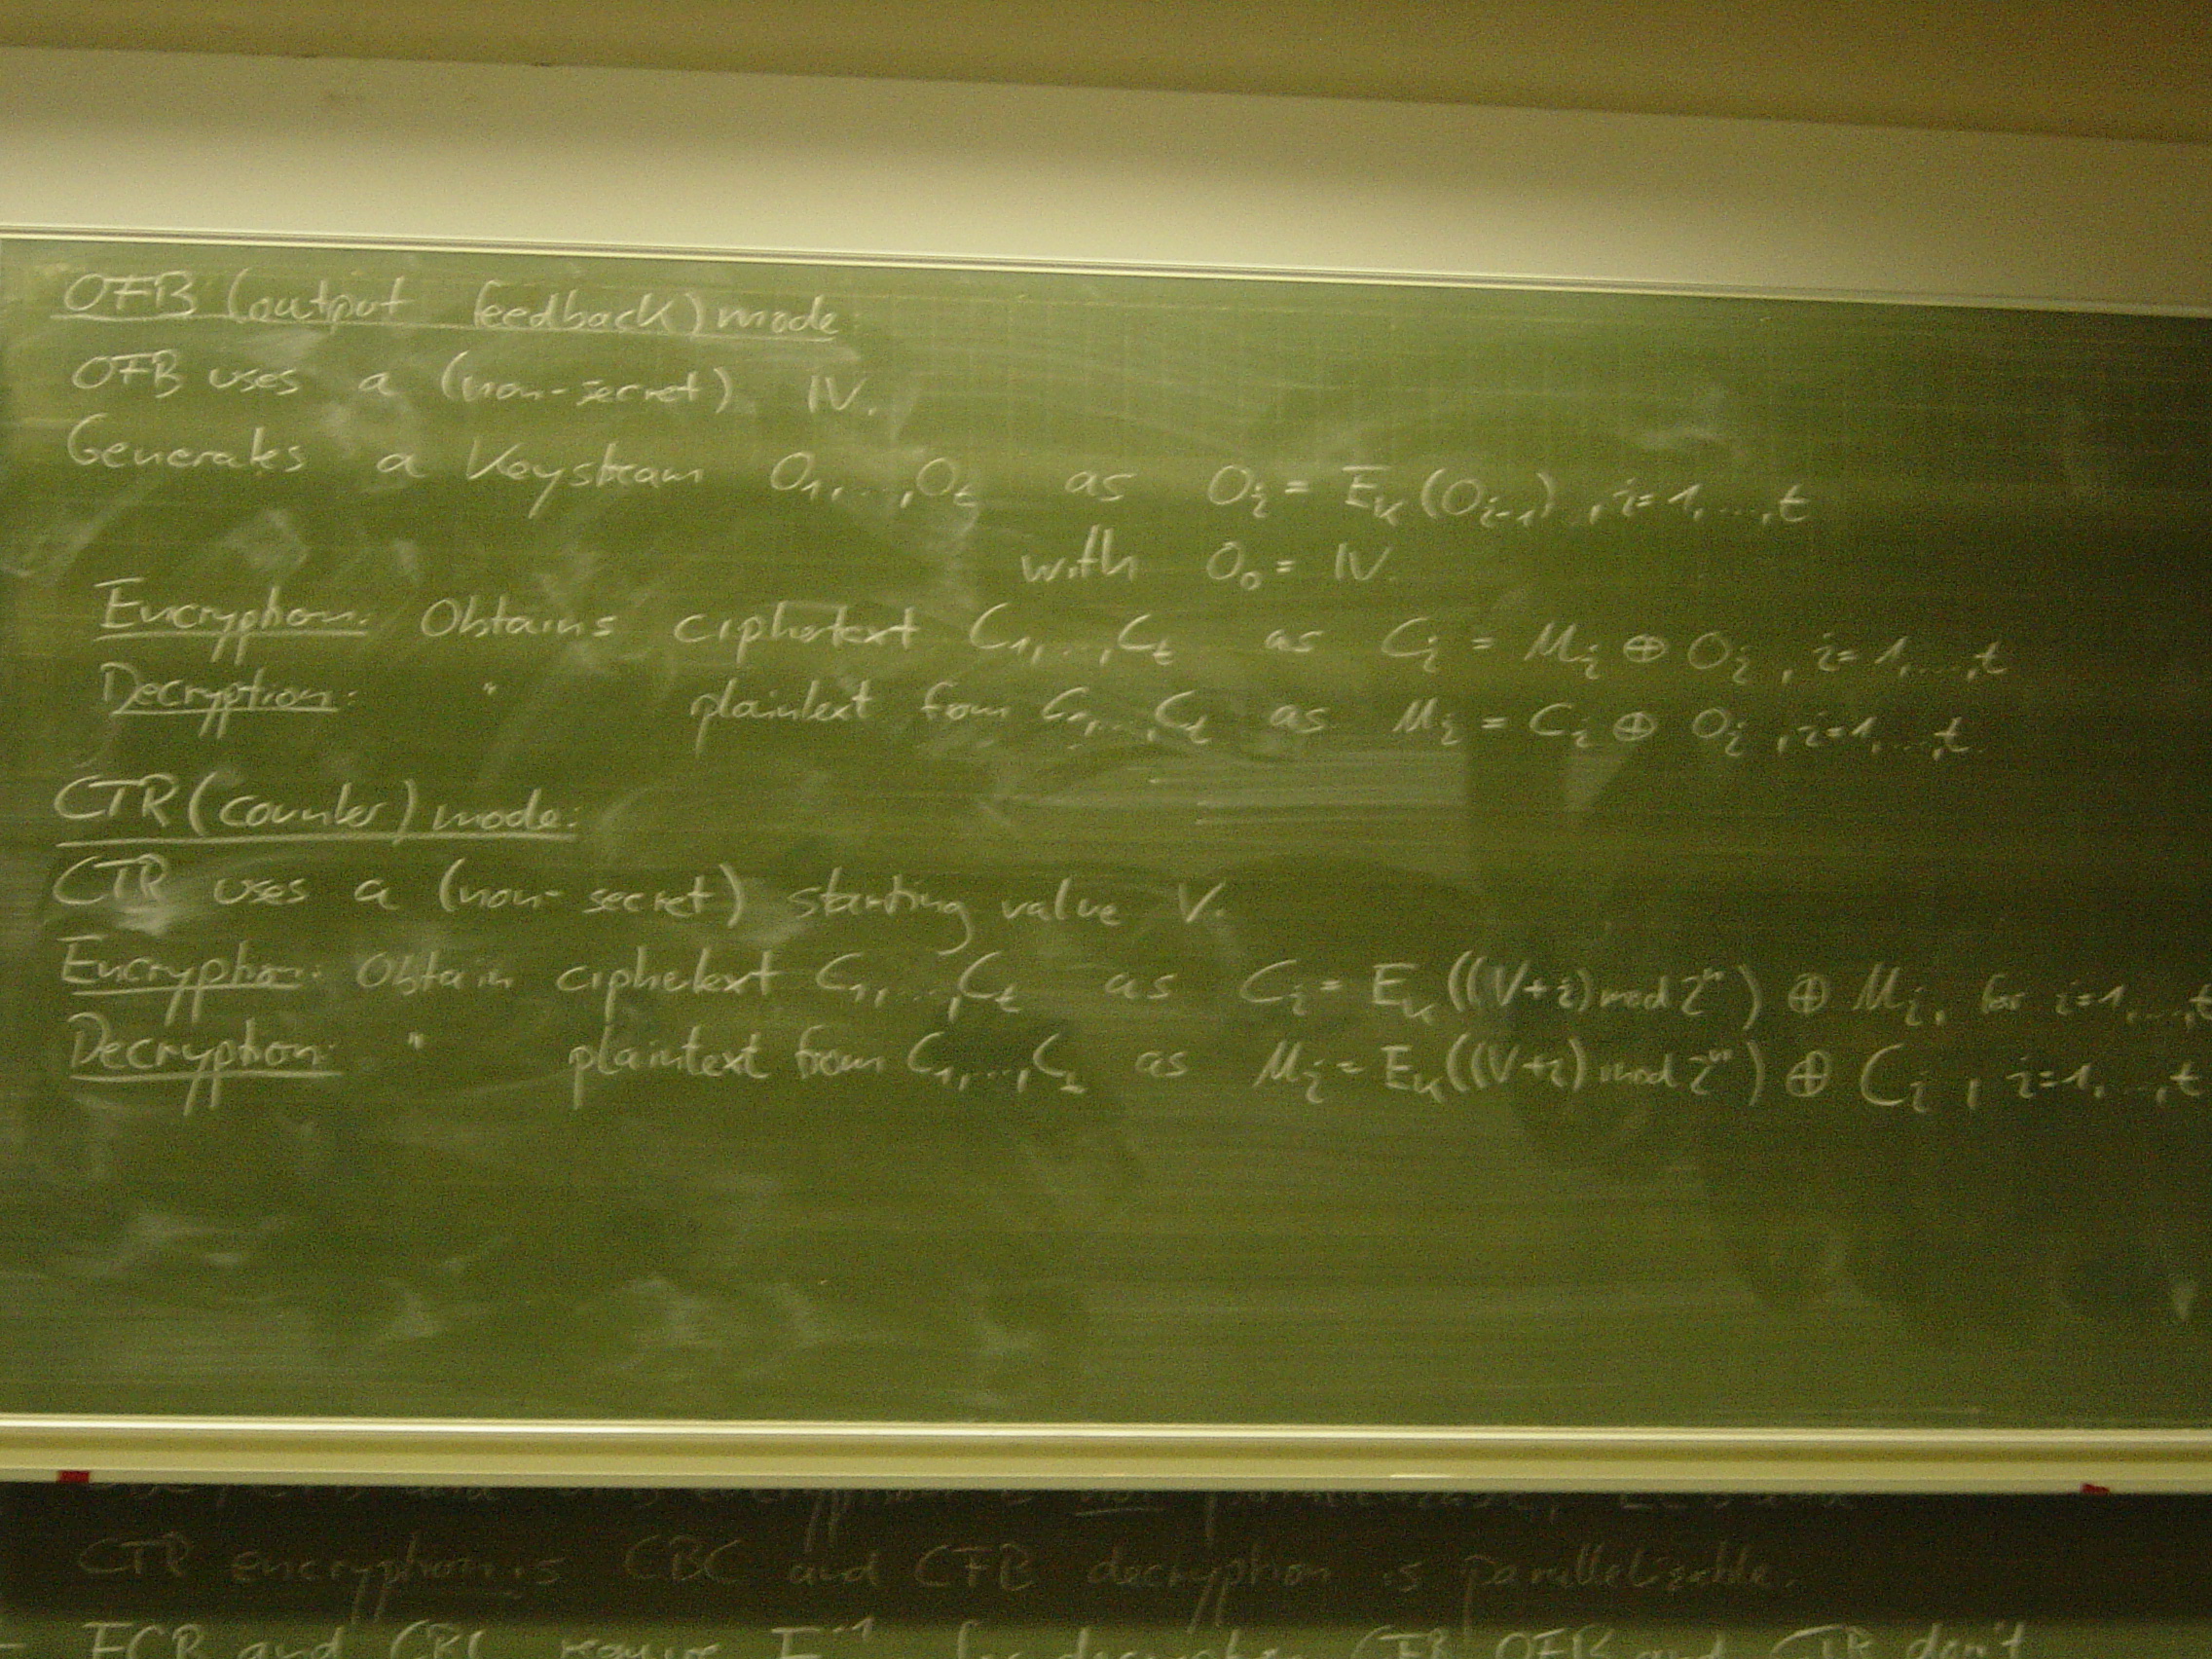 OFB (output feedback) mode
OFB uses a (non-secret) IV.
Generates a Keystream O₁,...,Oₜ as Oᵢ = E_K(Oᵢ₋₁), i=1,...,t
with O₀ = IV.
Encryption: Obtains ciphertext C₁,...,Cₜ as Cᵢ = Mᵢ ⊕ Oᵢ, i=1,...,t
Decryption: " plaintext from C₁,...,Cₜ as Mᵢ = Cᵢ ⊕ Oᵢ, i=1,...,t.
CTR (counter) mode:
CTR uses a (non-secret) starting value V.
Encryption: Obtain ciphertext C₁,...,Cₜ as Cᵢ = E_K((V+i) mod 2ⁿ) ⊕ Mᵢ, for i=1,...,t
Decryption: " plaintext from C₁,...,Cₜ as Mᵢ = E_K((V+i) mod 2ⁿ) ⊕ Cᵢ, i=1,...,t
CTR encryption is CBC and CFB decryption is parallelizable.
- ECB and CBC require E⁻¹ for CFB, OFB and CTR don't